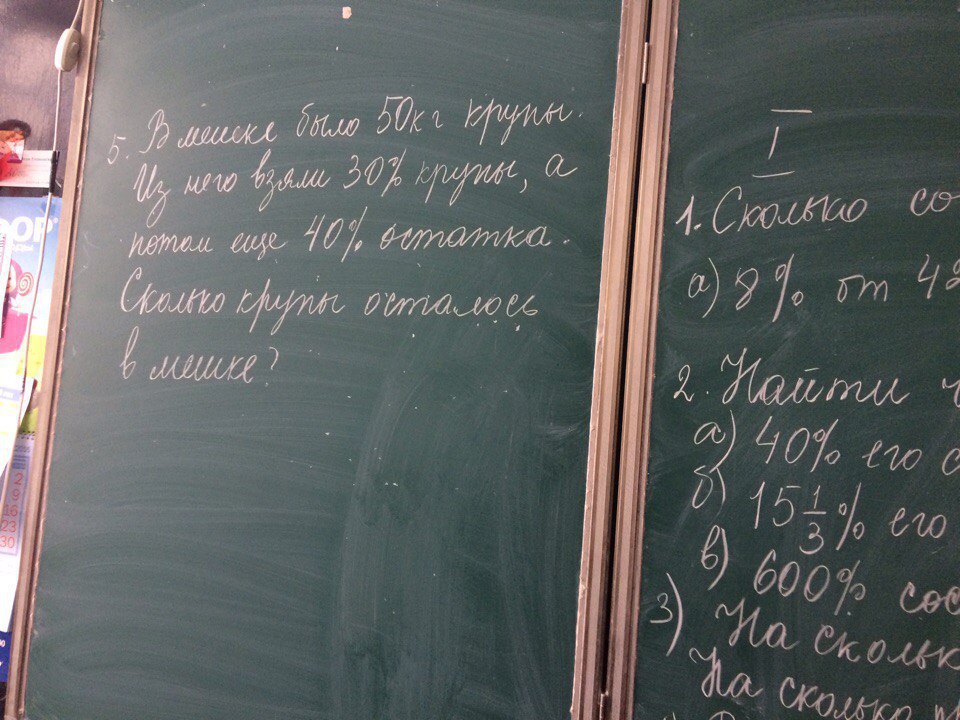 5. В мешке было 50 кг крупы.
Из него взяли 30% крупы, а
потом еще 40% остатка.
Сколько крупы осталось
в мешке?
I
1. Сколько со
а) 8% от 42
2. Найти ч
а) 40% его с
б) 15 1/3 % его
в) 600% сос
3) На сколько
На сколько
ООР
2
9
16
23
30